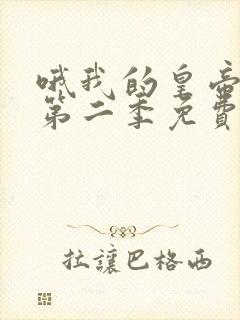 哦我的皇帝
第二季免費
拉讓巴格西